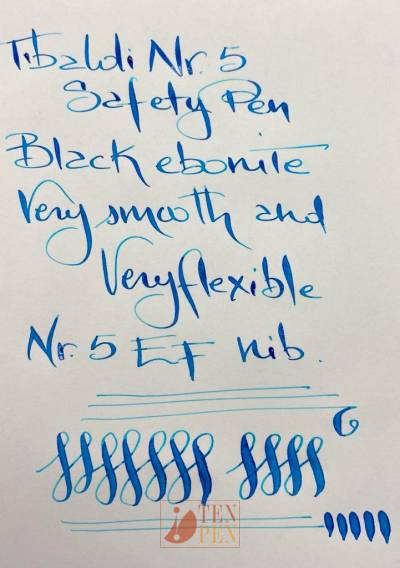 Tibaldi Nr. 5
Safety Pen
Black ebonite
Very smooth and
Very flexible
Nr. 5 EF nib.
TEN
PEN